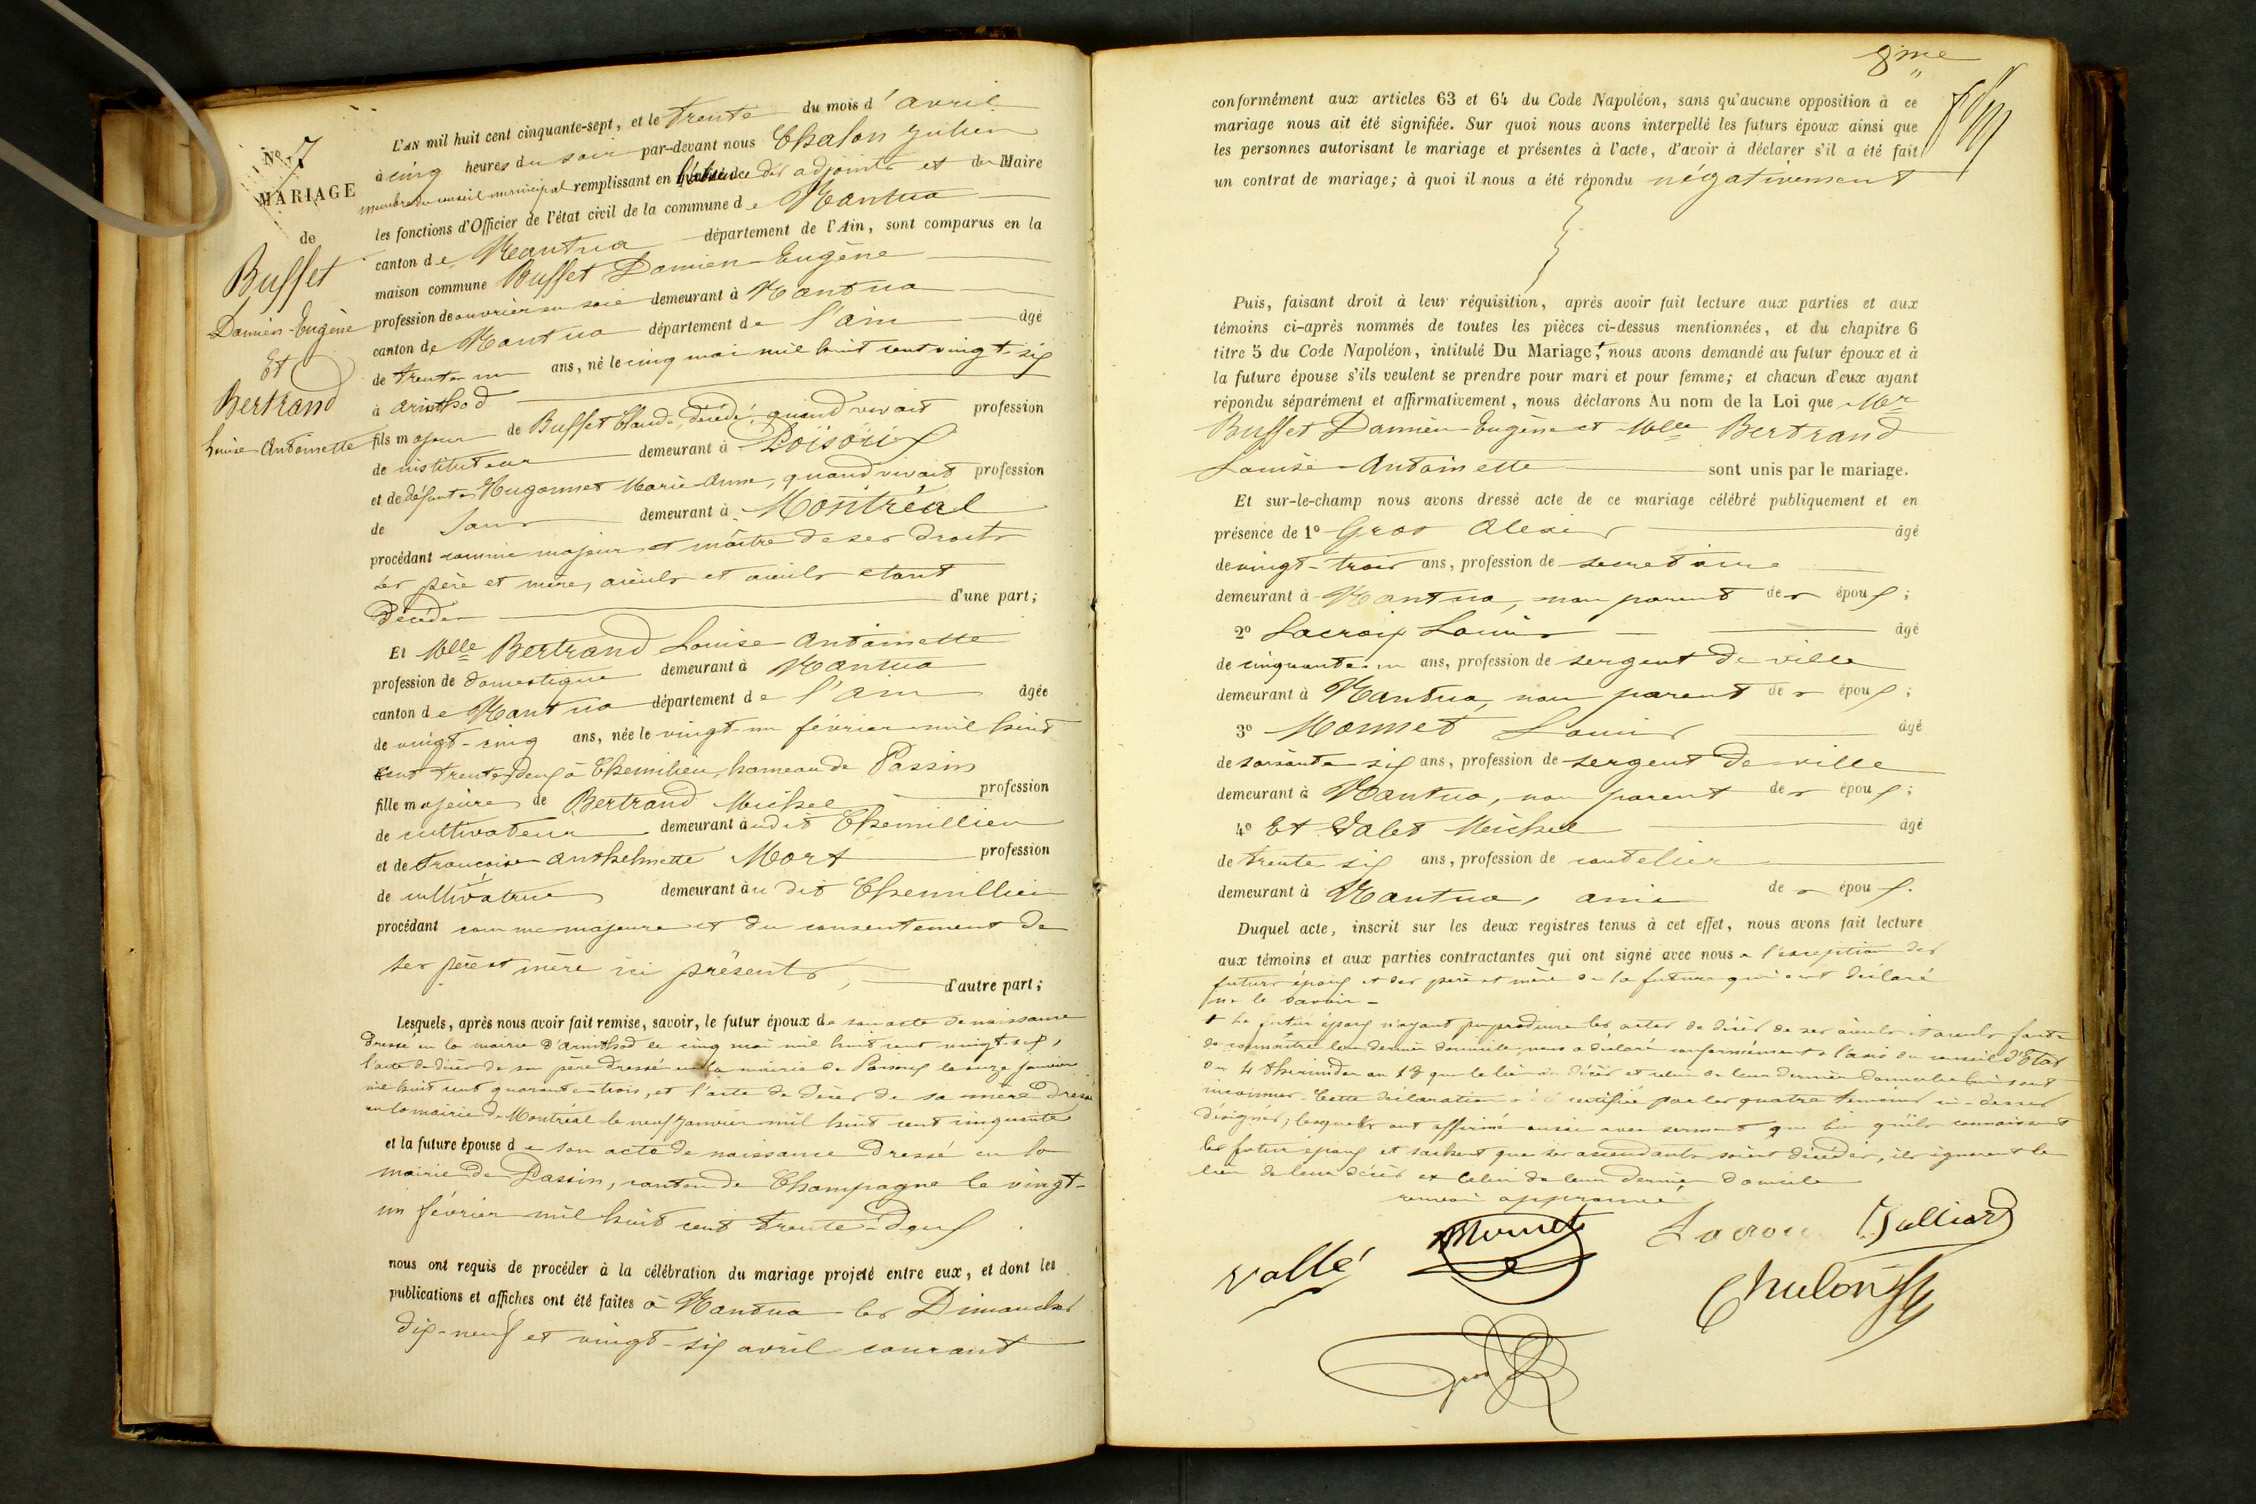 N° 7
MARIAGE
de
Buffet
Damien-Eugène
Et
Bertrand
Louise-Antoinette
L'AN mil huit cent cinquante-sept, et le trente du mois d'avril
à cinq heures du soir par-devant nous Chalon Julien
membre du conseil municipal remplissant en des adjoints et du Maire
les fonctions d'Officier de l'état civil de la commune de Nantua
canton de Nantua département de l'Ain, sont comparus en la
maison commune Buffet Damien-Eugène
profession de ouvrier en soie demeurant à Nantua
canton de Nantua département de l'ain âgé
de trente un ans, né le cinq mai mil huit cent vingt-six
à arinthod
fils majeur de Buffet Claude, décédé, quand vivait profession
de instituteur demeurant à
et de défunte Hugonnet Marie-Anne, quand vivait profession
de sans demeurant à Montréal
procédant comme majeur et maître de ses droits
ses père et mère, aieuls et aieuls étant
décédés d'une part;
Et Mlle Bertrand Louise-Antoinette
profession de domestique demeurant à Nantua
canton de Nantua département de l'ain âgée
de vingt-cinq ans, née le vingt-un février mil huit
cent trente deux à Chemilieu, hameau de Passin
fille majeure de Bertrand Michel profession
de cultivateur demeurant audit Chemillieu
et de francoise anthelmette Mort profession
de cultivatrice demeurant au dit Chemillieu
procédant comme majeure et du consentement de
ses père et mère ici présents, d'autre part;
Lesquels, après nous avoir fait remise, savoir, le futur époux de son acte de naissance
dressé en la mairie d'arinthod le cinq mai mil huit cent vingt-six,
l'acte de décès de son père dressé en la mairie de le onze janvier
mil huit cent quarante-trois, et l'acte de décès de sa mère dressé
en la mairie de Montréal le neuf janvier mil huit cent cinquante
et la future épouse de son acte de naissance dressé en la
mairie de Passin, canton de Champagne le vingt-
un février mil huit cent trente-deux.
nous ont requis de procéder à la célébration du mariage projeté entre eux, et dont les
publications et affiches ont été faites à Nantua les Dimanches
dix-neuf et vingt-six avril courant
8me
conformément aux articles 63 et 64 du Code Napoléon, sans qu'aucune opposition à ce
mariage nous ait été signifiée. Sur quoi nous avons interpellé les futurs époux ainsi que
les personnes autorisant le mariage et présentes à l'acte, d'avoir à déclarer s'il a été fait
un contrat de mariage; à quoi il nous a été répondu négativement
Puis, faisant droit à leur réquisition, après avoir fait lecture aux parties et aux
témoins ci-après nommés de toutes les pièces ci-dessus mentionnées, et du chapitre 6
titre 5 du Code Napoléon, intitulé Du Mariage,+ nous avons demandé au futur époux et à
la future épouse s'ils veulent se prendre pour mari et pour femme; et chacun d'eux ayant
répondu séparément et affirmativement, nous déclarons Au nom de la Loi que Mr
Buffet Damien-Eugène et Mlle Bertrand
Louise-Antoinette sont unis par le mariage.
Et sur-le-champ nous avons dressé acte de ce mariage célébré publiquement et en
présence de 1° Gros Alexis âgé
de vingt-trois ans, profession de secretaire
demeurant à Nantua, non parent des époux;
2° Lacroix Louis âgé
de cinquante un ans, profession de sergent de ville
demeurant à Nantua, non parent des époux;
3° Monnet Louis âgé
de soixante six ans, profession de sergent de ville
demeurant à Nantua, non parent des époux;
4° Et Valet Michel âgé
de trente six ans, profession de coutelier
demeurant à Nantua, ami des époux.
Duquel acte, inscrit sur les deux registres tenus à cet effet, nous avons fait lecture
aux témoins et aux parties contractantes qui ont signé avec nous a l'exception des
futurs époux et des père et mère de la future qui ont déclaré
ne le savoir -
+ Le futur époux n'ayant pu produire les actes de décès de ses aieuls et aieuls faute
de connaitre leur dernier domicile, nous a déclaré conformément à l'avis du conseil d'Etat
du 4 thermidor an 13 que le lieu du décès et celui de leur dernier domicile lui sont
inconnus. Cette déclaration a été certifiée par les quatre témoins ci-dessus
désignés, lesquels ont affirmé aussi avec serment que bien qu'ils connaissent
le futur époux et sachent que ses ascendants soient décédés, ils ignorent le
lieu de leur décès et celui de leur dernier domicile
renvoi approuvé
vallé Monnet Lacroix Julliard
Chalon
Gros